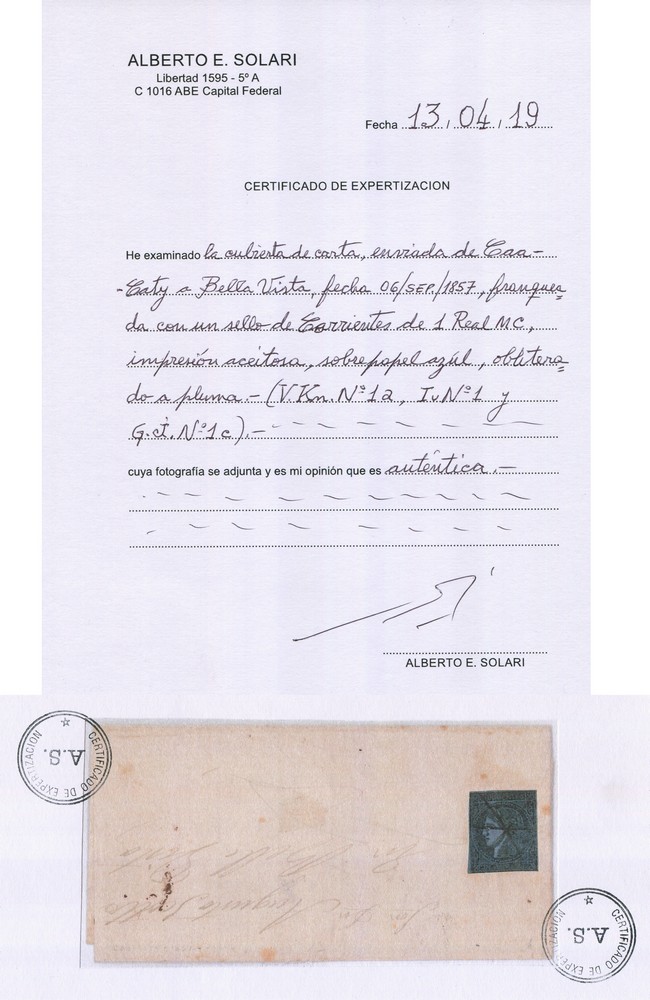 ALBERTO E. SOLARI
Libertad 1595 - 5º A
C 1016 ABE Capital Federal
Fecha 13 / 04 / 19
CERTIFICADO DE EXPERTIZACION
He examinado la cubierta de carta, enviada de Caa-
-Caty a Bella Vista, fecha 06/SEP./1857, franquea=
da con un sello de Corrientes de 1 Real MC,
impresión aceitosa, sobre papel azul, oblitera=
do a pluma.- (V. Kn. Nº 1a, Iv Nº 1 y
G.J. Nº 1c).-
cuya fotografía se adjunta y es mi opinión que es auténtica.-
ALBERTO E. SOLARI
CERTIFICADO DE EXPERTIZACION
A.S.
Bella Vista
CERTIFICADO DE EXPERTIZACION
A.S.